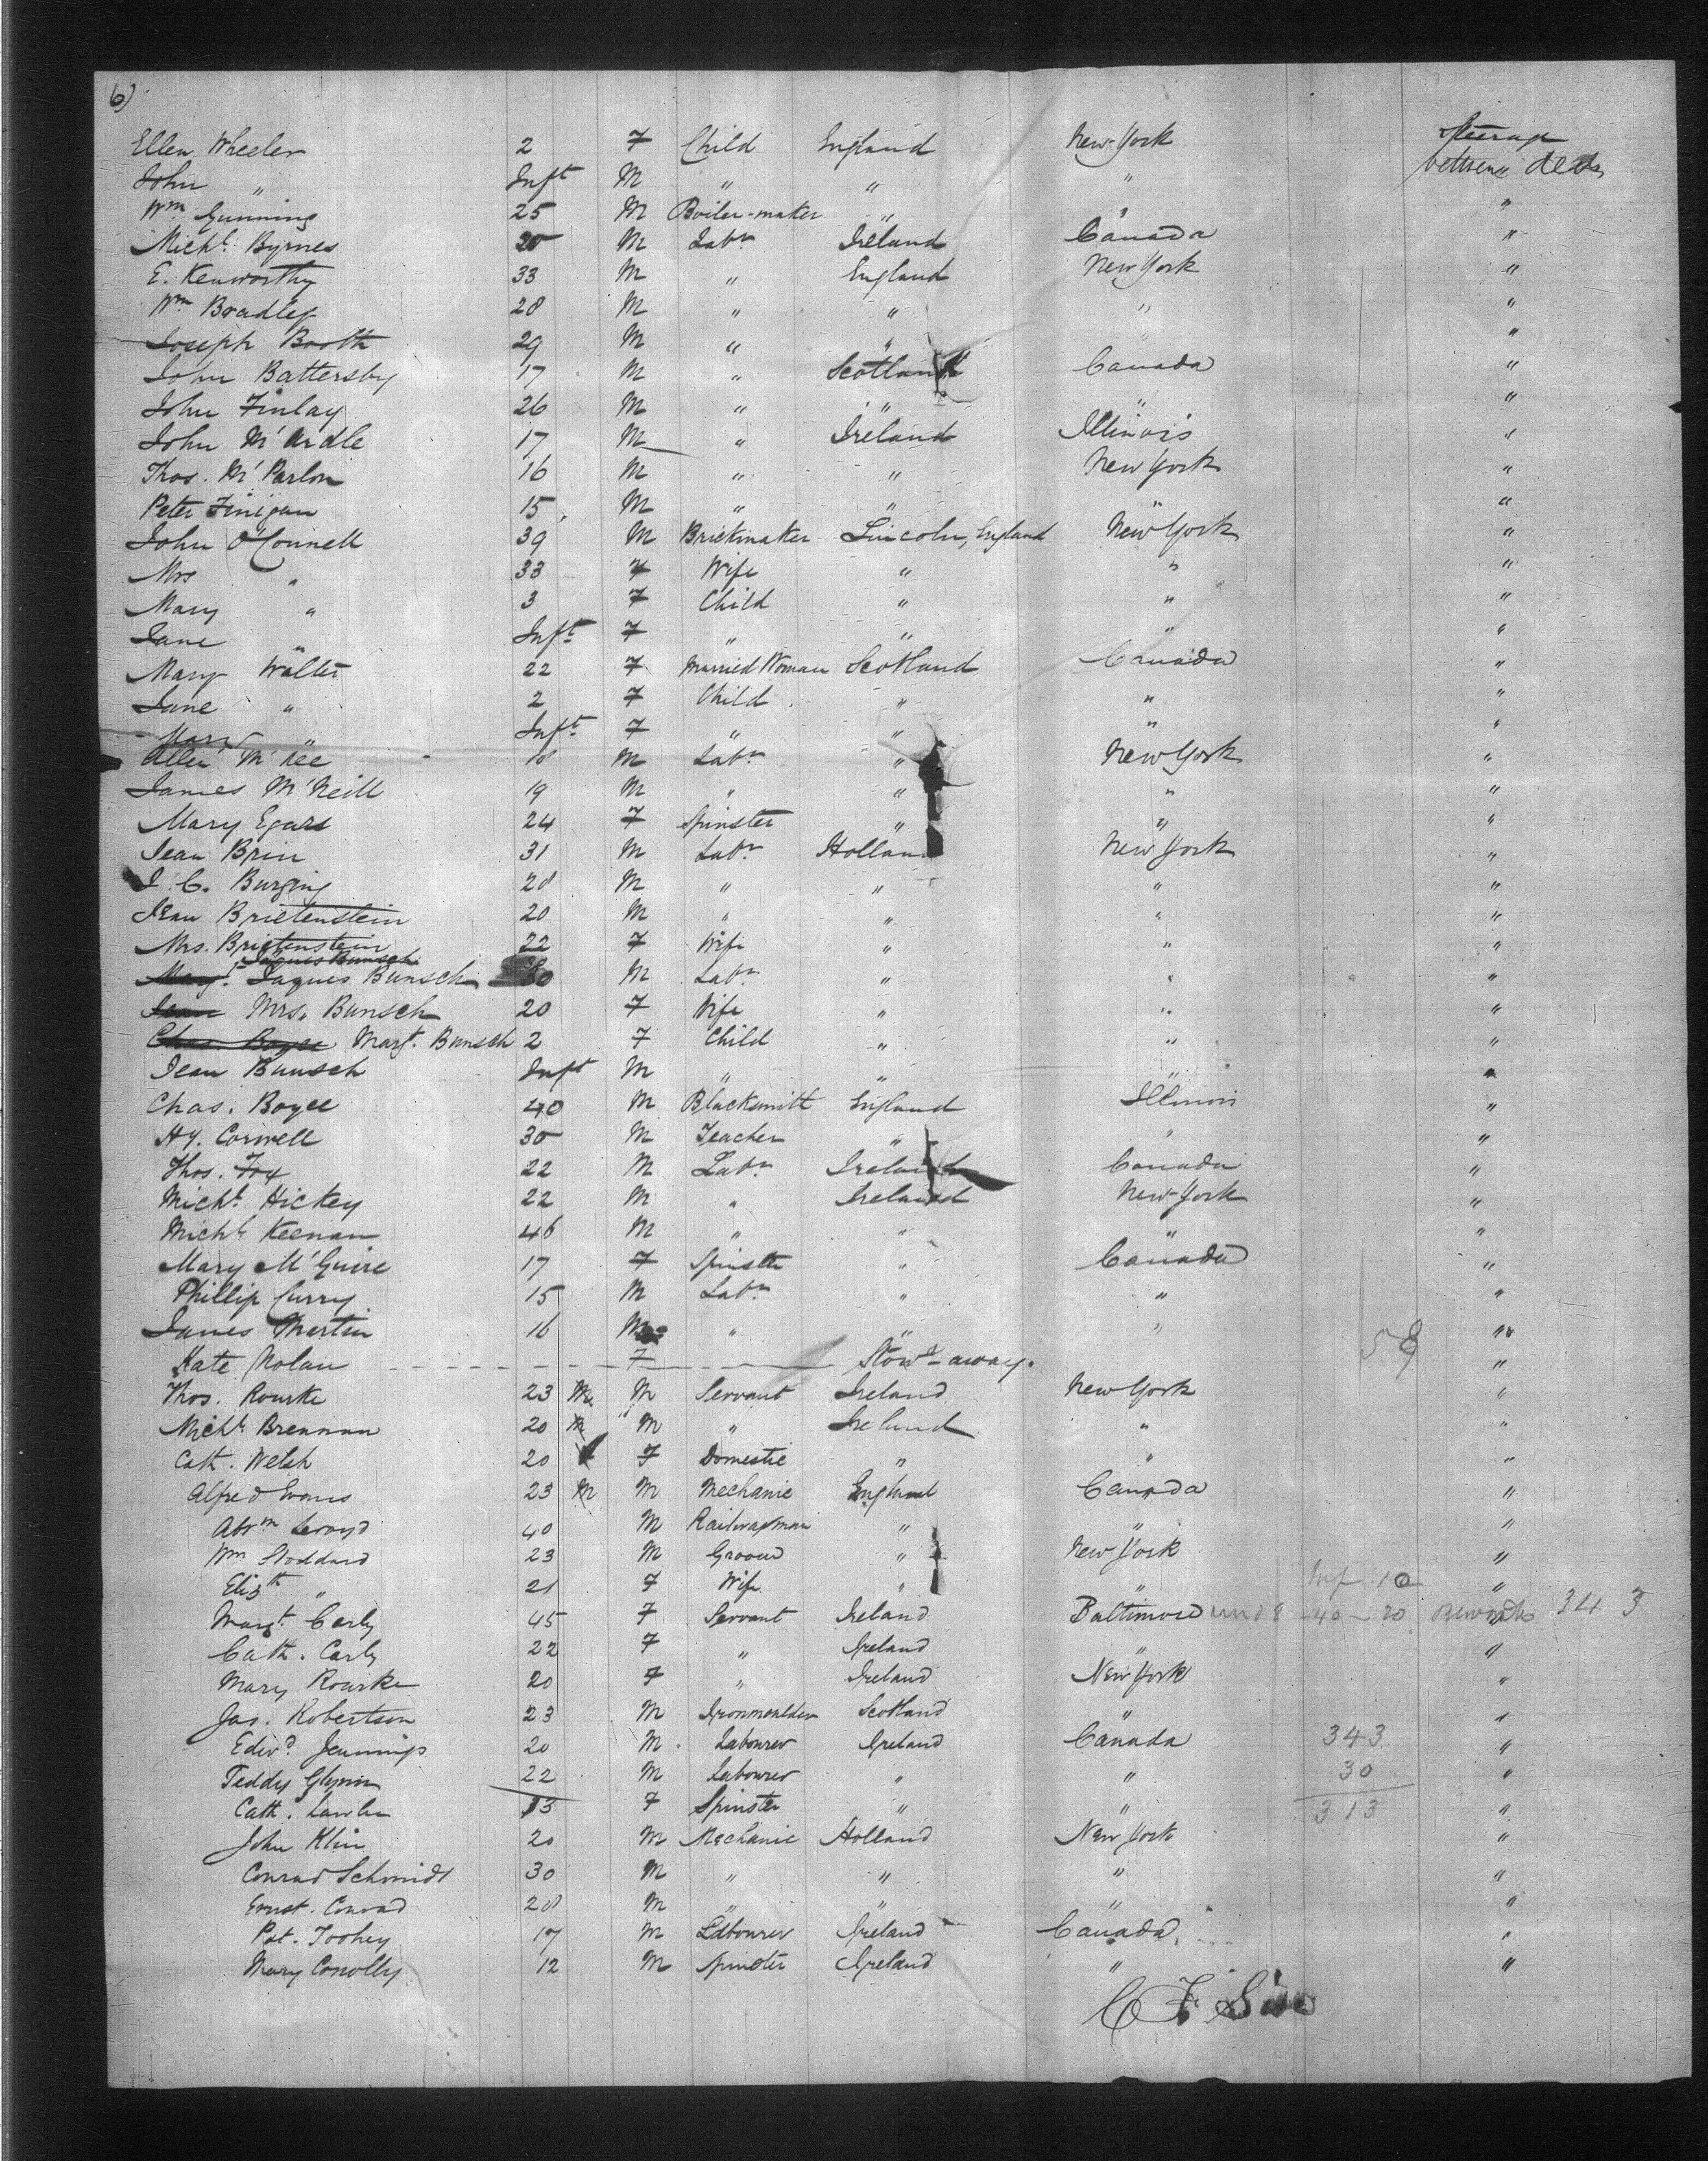 6)
Ellen Wheeler 2 F Child England New York Steerage
John " Inft M " " " between decks
Wm Gunning 25 M Boiler-maker " " "
Michl. Byrnes 20 M Labr Ireland Canada "
E. Kenworthy 33 M " England New York "
Wm Bradley 28 M " " " "
Joseph Booth 29 M " " "
John Battersby 17 M " Scotland Canada "
John Finlay 26 M " " " "
John M'Ardle 17 M " Ireland Illinois "
Thos. M'Parlon 16 M " " New York "
Peter Finigan 15 M " " " "
John O'Connell 39 M Brickmaker Lincoln, England New York "
Mrs " 33 F Wife " " "
Mary " 3 F Child " " "
Jane " Inft F " " " "
Mary Walter 22 F Married Woman Scotland Canada "
Jane " 2 F Child " " "
Mary " Inft F " " " "
Allen M'Kee 18 M Labr " New York "
James M'Neill 19 M " " " "
Mary Egars 24 F Spinster " " "
Jean Brin 31 M Labr Holland New York "
J. C. Burging 28 M " " " "
Jean Brietenstein 20 M " " " "
Mrs. Brietenstein 22 F Wife " " "
Jaques Bunsch
Margt. Jaques Bunsch 30 M Labr " " "
Jean Mrs. Bunsch 20 F Wife " " "
Chas. Boyce Margt. Bunsch 2 F Child " " "
Jean Bunsch Inft M " " " "
Chas. Boyce 40 M Blacksmith England Illinois "
Hy. Corwell 30 M Teacher " " "
Thos. Fox 22 M Labr Ireland Canada "
Michl. Hickey 22 M " Ireland New York "
Michl. Keenan 46 M " " " "
Mary M'Guire 17 F Spinster " Canada "
Phillip Curry 15 M Labr " " "
James Martin 16 M " " " "
58
Kate Nolan F Stow-away. "
Thos. Rourke 23 M M Servant Ireland New York "
Michl. Brennan 20 M M " Ireland " "
Cath. Welsh 20 F Domestic " " "
Alfred Evans 23 M M Mechanic England Canada "
Abrm 40 M Railwayman " " "
Wm Stoddard 23 M Groom " New York "
Elizth " 21 F Wife " " "
Inf 10
Margt. Carly 45 F Servant Ireland Baltimore und 8 - 40 - 20 " 34 3
Cath. Carly 22 F " Ireland " "
Mary Rourke 20 F " Ireland New York "
Jas. Robertson 23 M Ironmoulder Scotland " "
Edwd. Jennings 20 M Labourer Ireland Canada 343 "
Teddy Glynn 22 M Labourer " " 30 "
Cath. Lawler 13 F Spinster " " 313 "
John Klin 20 M Mechanic Holland New York "
Conrad Schmidt 30 M " " " "
Ernst. Conrad 28 M " " " "
Pat. Toohey 17 M Labourer Ireland Canada "
Mary Conolly 12 M Spinster Ireland " "
C F